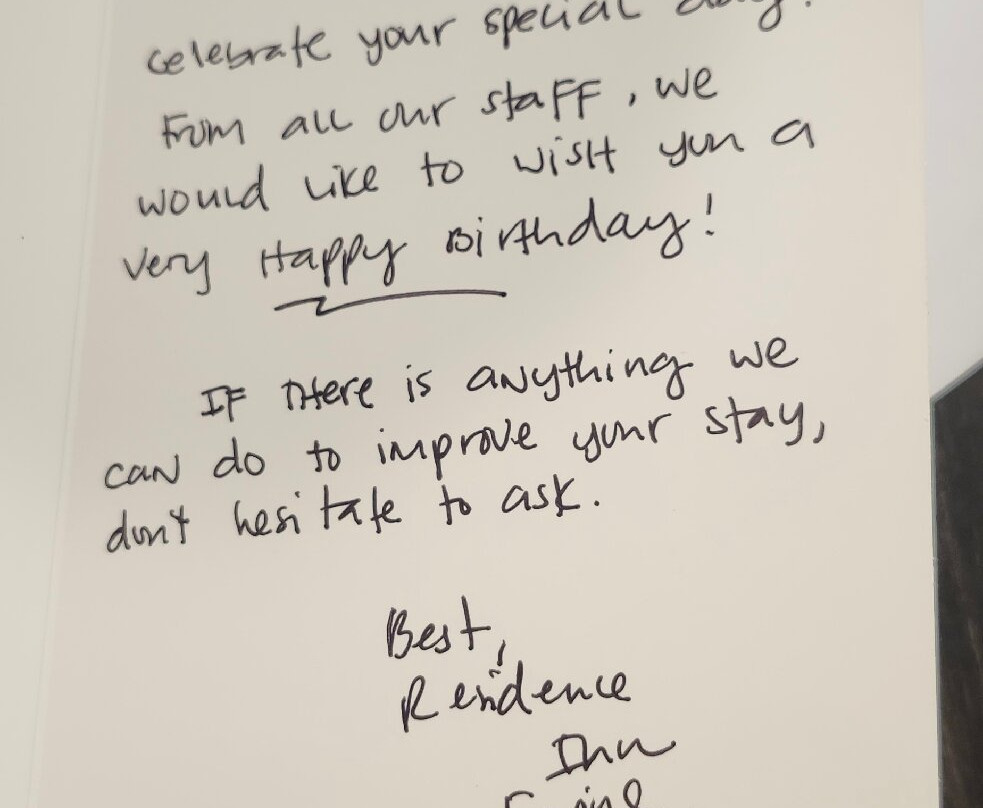 celebrate your special day!
From all our staff, we
would like to wish you a
very Happy Birthday!
If there is anything we
can do to improve your stay,
don't hesitate to ask.
Best,
Residence
Inn